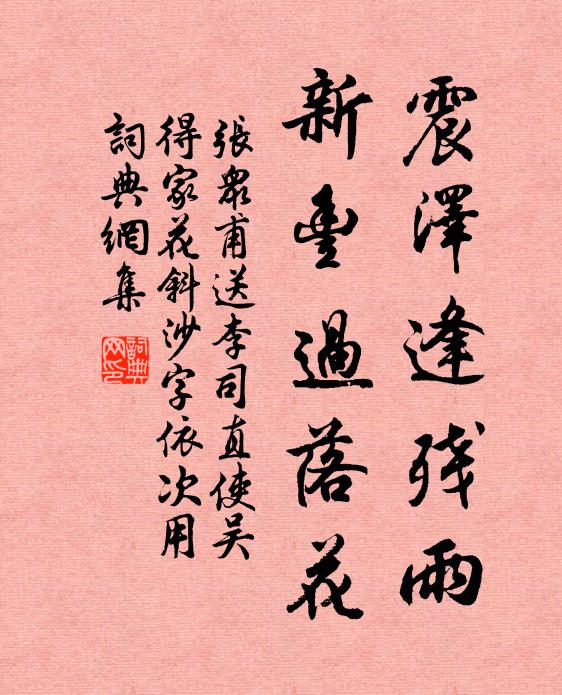 震澤逢残雨
新豊過落花
張眾甫送李司直使吴
得家花斜沙字依次用
詞典網集
詞典網印